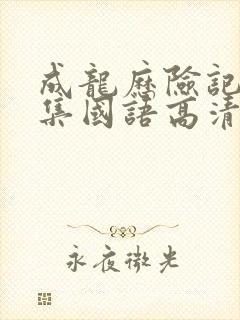 成龍歷險記
集國語高清
永夜微光